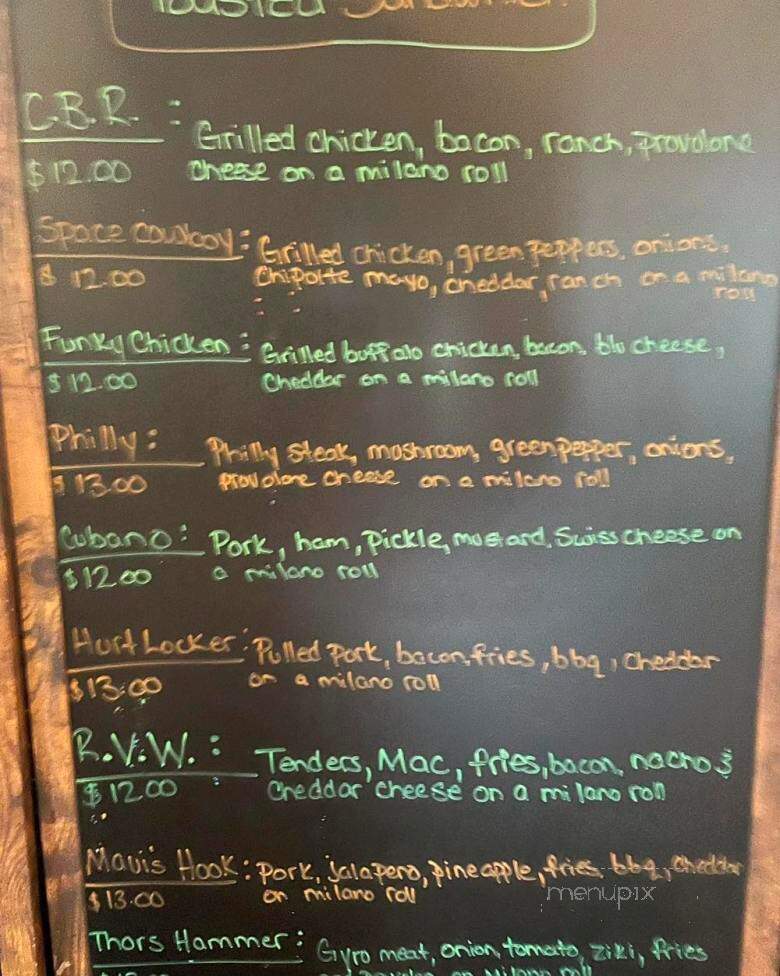 Toasted Sandwiches
C.B.R. :
Grilled chicken, bacon, ranch, provolone
$12.00
cheese on a milano roll
Space Cowboy :
Grilled chicken, green peppers, onions,
$ 12.00
Chipolte mayo, cheddar, ranch on a milano
roll
Funky Chicken :
Grilled buffalo chicken, bacon, blu cheese,
$12.00
Cheddar on a milano roll
Philly :
Philly steak, moshroom, green pepper, onions,
$13.00
provolone cheese on a milano roll
Cubano :
Pork, ham, Pickle, mustard, Swiss cheese on
$12.00
a milano roll
Hurt Locker :
Pulled Pork, bacon, fries, bbq, cheddar
$13.00
on a milano roll
R.V.W. :
Tenders, Mac, fries, bacon, nacho &
$12.00
Cheddar cheese on a milano roll
Maui's Hook :
Pork, jalapeno, pineapple, fries, bbq, cheddar
$13.00
on milano roll
menupix
Thors Hammer :
Gyro meat, onion, tomato, ziki, fries
on Milano roll